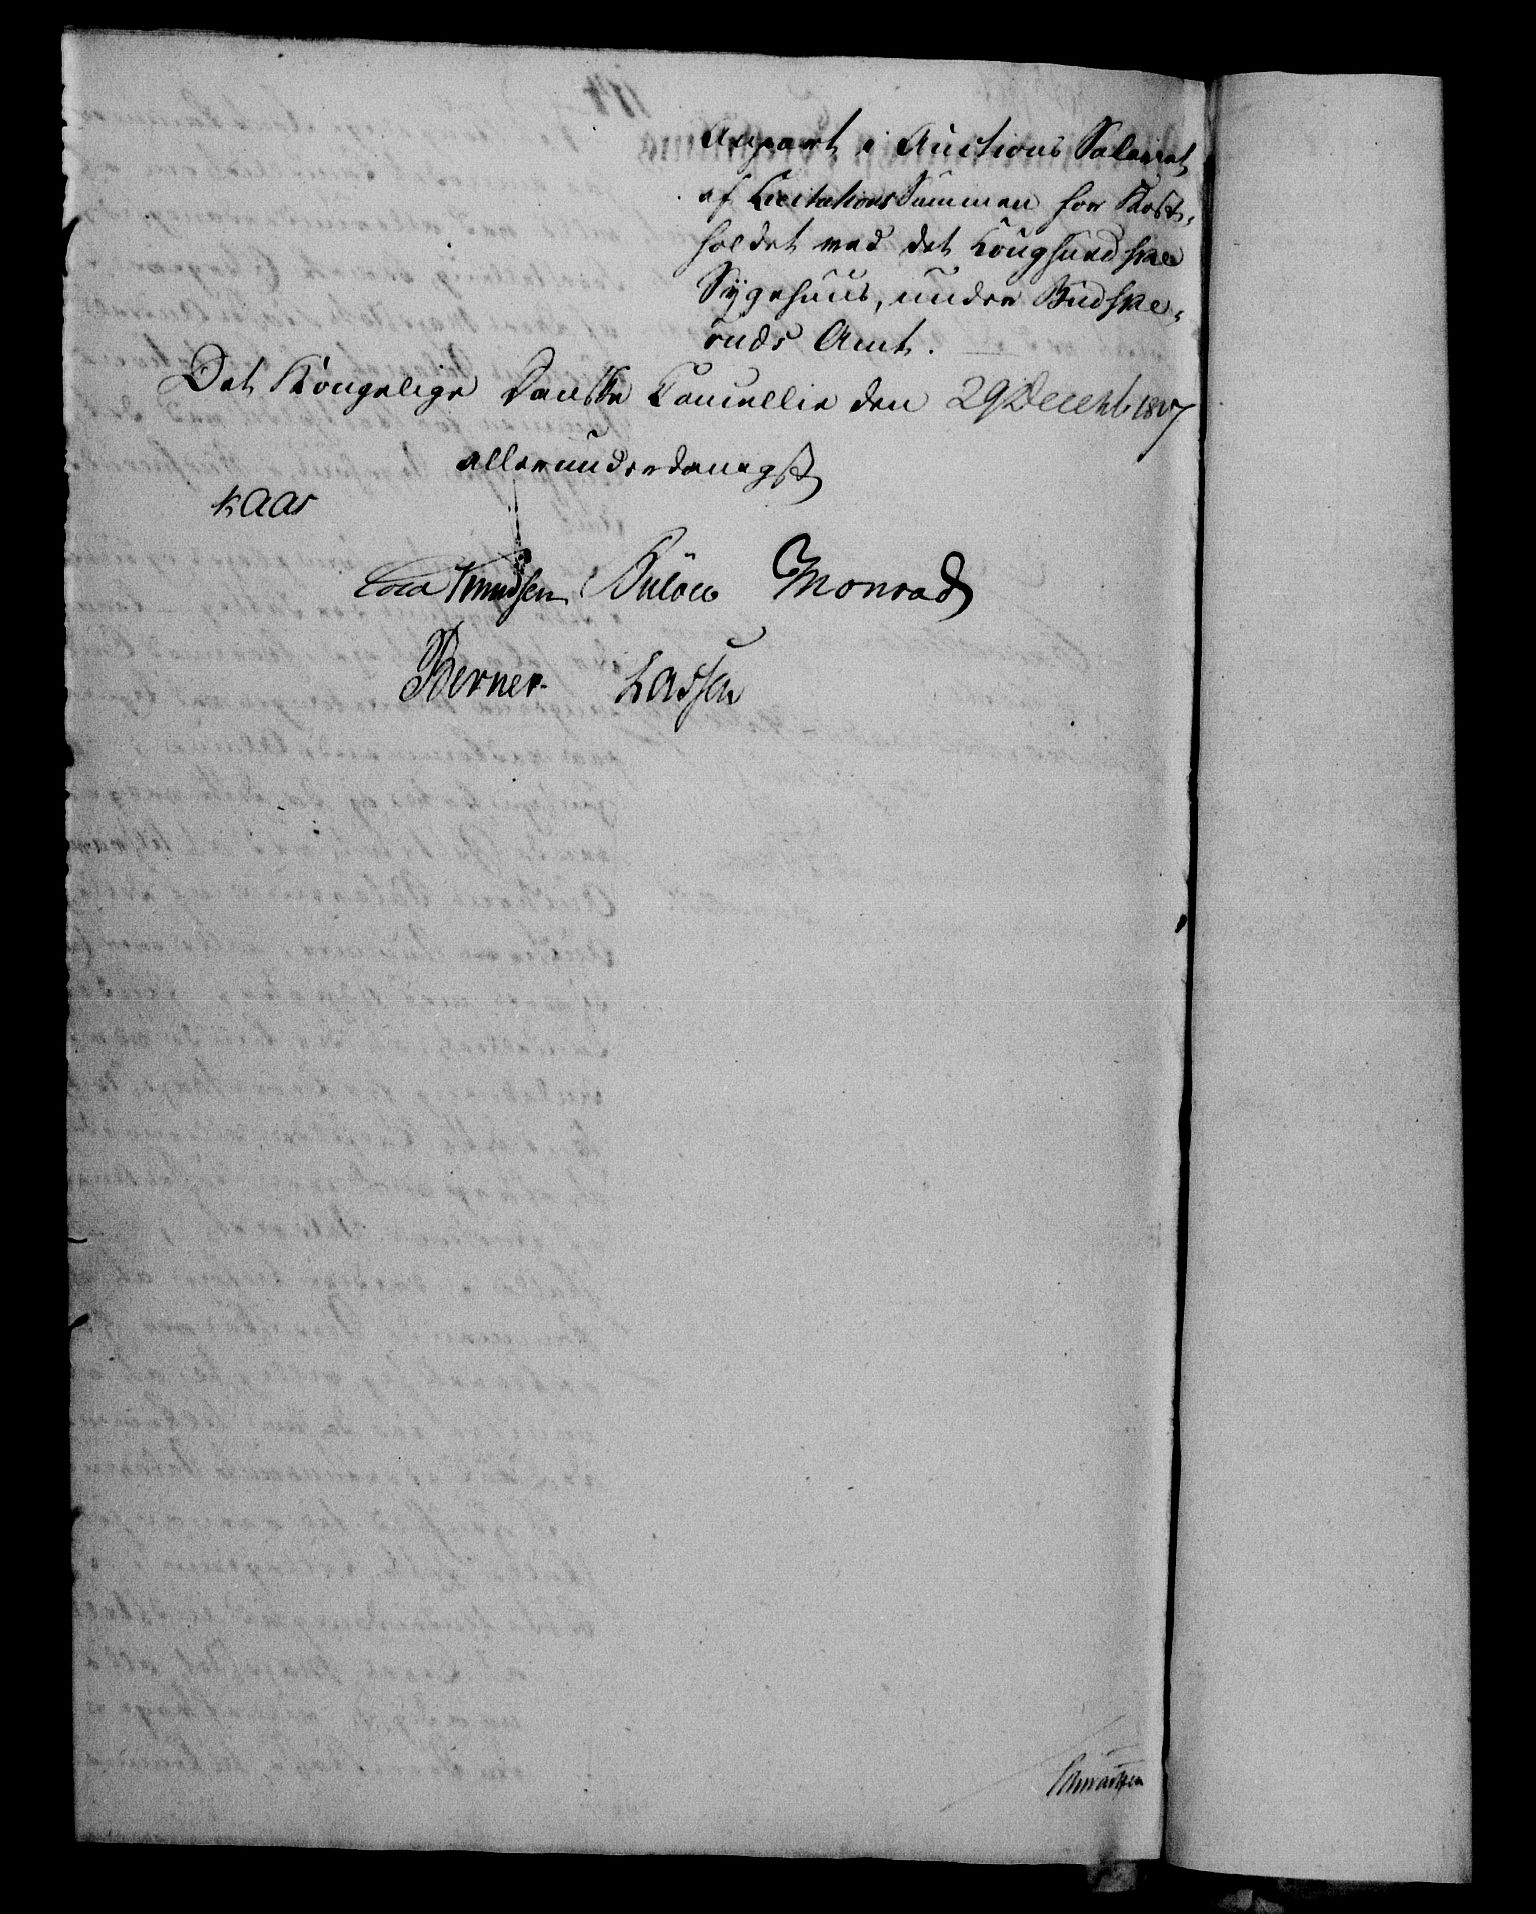 Anpart i Auctions Salariet
af Licitations Summen for Kost-
holdet ved det Kongsundske
Sygehuus, under Budske-
ruds Amt.
Det Kongelige Danske Cancellie den 29 Decemb. 1807
allerunderdanigst
Kaas
Cold Knudsen Bülow Monrad
Berner Lassen